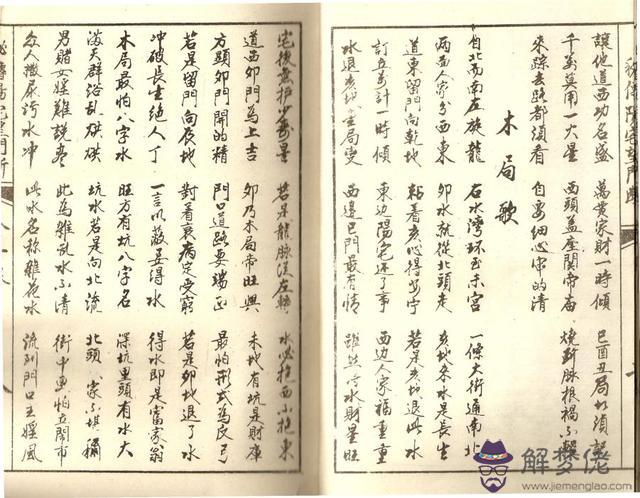 讓他道西功名盛 萬貫家財一時傾 巳酉丑局須記
千萬莫用一大星 西頭蓋座關帝庙 燒斬脉根禍不輕
來踪去路都須看 自要細心的清
木局歌
自北而南左旋龍 石水灣环至未宮 一條大街通南北
两面人家分西東 卯水就從北頭走 亥地來水是長生
道東留門向乾地 粘着亥心得安宁 若是亥地退此水
訂立計一時傾 東边陽宅还了事 西边人家福重重
水退亥地金局变 西边巳門最有情 雖然水財星旺
宅後星 若是龍脉從左轉 水必抱西小抱東
道西卯門為上吉 卯乃木局帝旺興 未地有坑是財庫
方顕卯門開的精 門口道路要端正 最怕形式為反弓
若是留門向辰地 對着衰病定受窮 若是卯地退了水
冲破長生絕人丁 一言以蔽要得水 得水即是富家翁
木局最怕八字水 旺方有坑八字名 深坑里頭有水大
满天群浴乱烘烘 坑水若是向北流 北頭人家不堪稱
男賭女淫難說尽 此為雜乱水不清 街中更怕立闹市
众人撒尿污水冲 此水名称雜花水 流到門口主淫風
解梦佬
www.jiemenglao.com